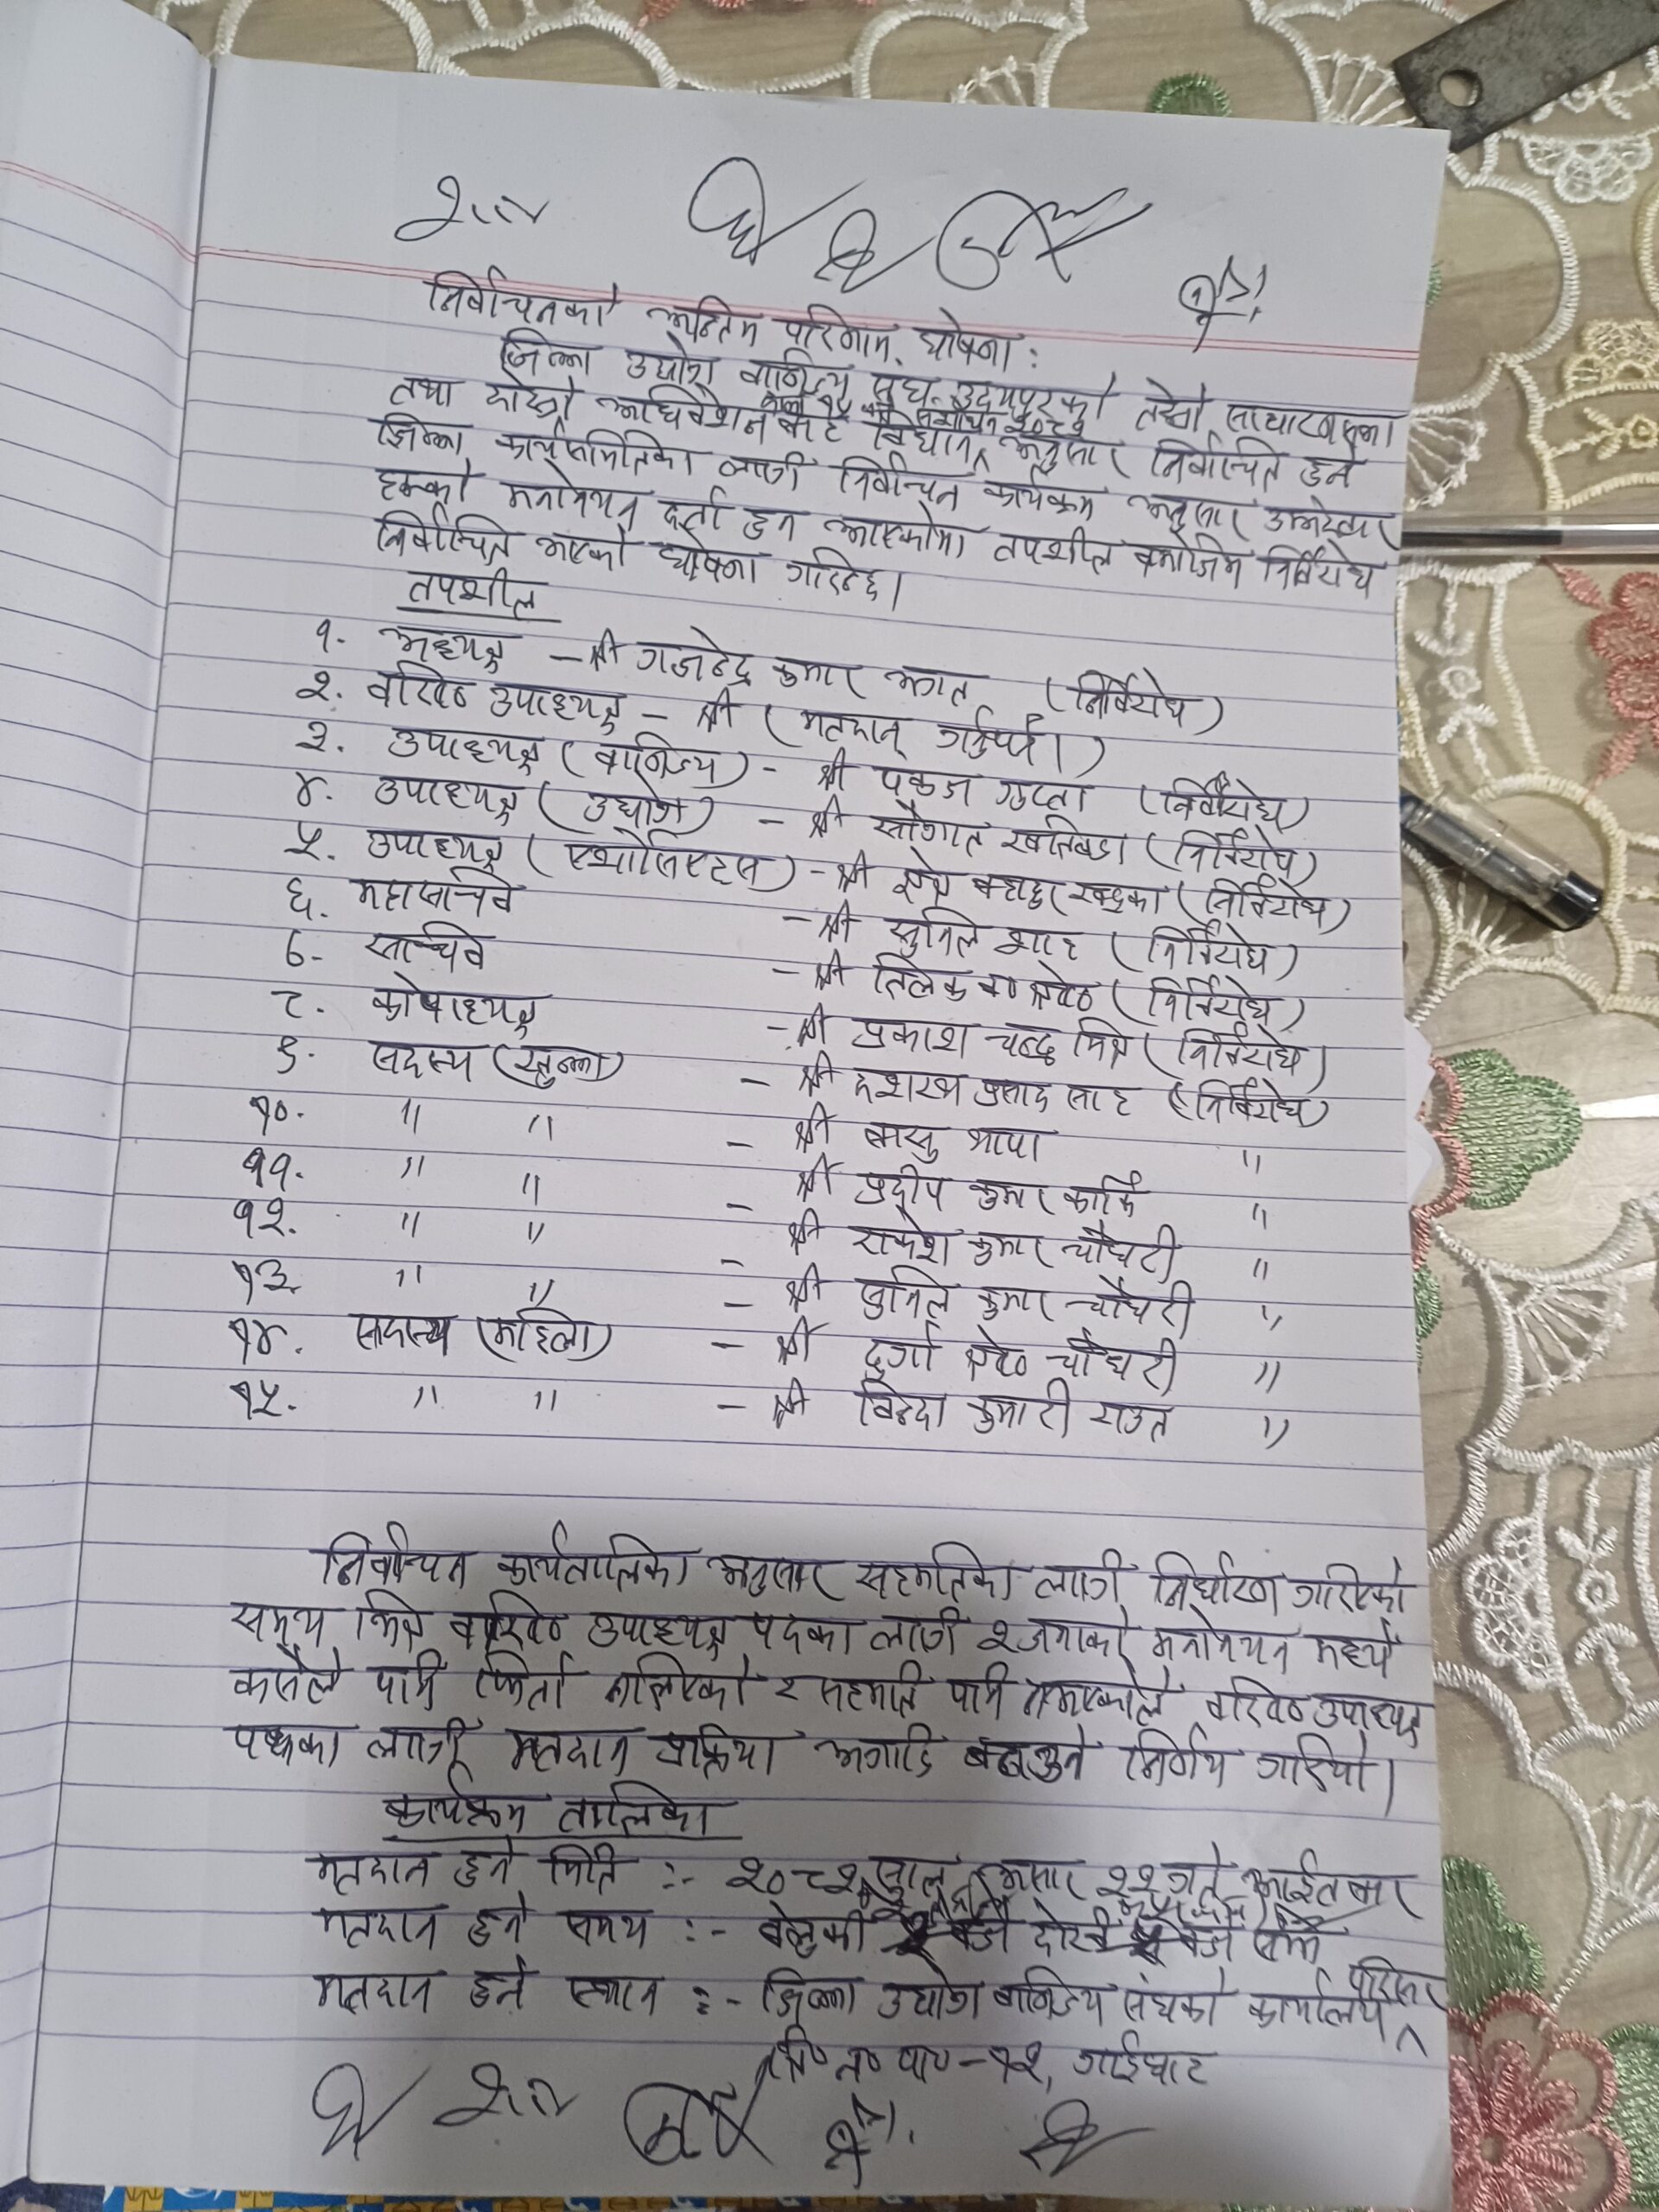 निर्वाचनको अन्तिम परिणाम घोषणा :
जिल्ला उद्योग वाणिज्य संघ उदयपुरको तेस्रो साधारणसभा
तथा दोस्रो अधिवेशनबाट विधान अनुसार निर्वाचित हुने
जिल्ला कार्यसमितिका लागी निर्वाचन कार्यक्रम अनुसार उम्मेदवार
हरुको मनोनयन दर्ता हुन आएकोमा तपशील बमोजिम निर्विरोध
निर्वाचित भएको घोषणा गरिन्छ।
तपशील
१. अध्यक्ष – श्री गजेन्द्र कुमार भगत (निर्विरोध)
२. वरिष्ठ उपाध्यक्ष – श्री (मतदान गर्नुपर्ने।)
३. उपाध्यक्ष (वाणिज्य) – श्री पंकज गुप्ता (निर्विरोध)
४. उपाध्यक्ष (उद्योग) – श्री सौगात खतिवडा (निर्विरोध)
५. उपाध्यक्ष (एशोसिएट्स) – श्री क्षेत्र बहादुर खड्का (निर्विरोध)
६. महासचिव – श्री सुनिल साह (निर्विरोध)
७. सचिव – श्री तिलक ब० श्रेष्ठ (निर्विरोध)
८. कोषाध्यक्ष – श्री प्रकाश चन्द्र मिश्र (निर्विरोध)
९. सदस्य (खुल्ला) – श्री दशरथ प्रसाद साह (निर्विरोध)
१०. " " – श्री बासु थापा "
११. " " – श्री प्रदीप कुमार कार्कि "
१२. " " – श्री राकेश कुमार चौधरी "
१३. " " – श्री सुनिल कुमार चौधरी "
१४. सदस्य (महिला) – श्री दुर्गा श्रेष्ठ चौधरी "
१५. " " – श्री विन्दा कुमारी राउत "
निर्वाचन कार्यतालिका अनुसार सहमतिका लागी निर्धारण गरिएको
समय भित्र वरिष्ठ उपाध्यक्ष पदका लागी २ जनाको मनोनयन मध्ये
कसैले पनि फिर्ता नलिएको र सहमति पनि नभएकोले वरिष्ठ उपाध्यक्ष
पदका लागी मतदान प्रक्रिया अगाडि बढाउने निर्णय गरियो।
कार्यक्रम तालिका
मतदान हुने मिति :- २०८२ साल असार २२ गते आईतबार
मतदान हुने समय :- बेलुकी बजे देखी बजे सम्म
मतदान हुने स्थान :- जिल्ला उद्योग वाणिज्य संघको कार्यालय परिसर
त्रि० न० पा० – १२, गाईघाट